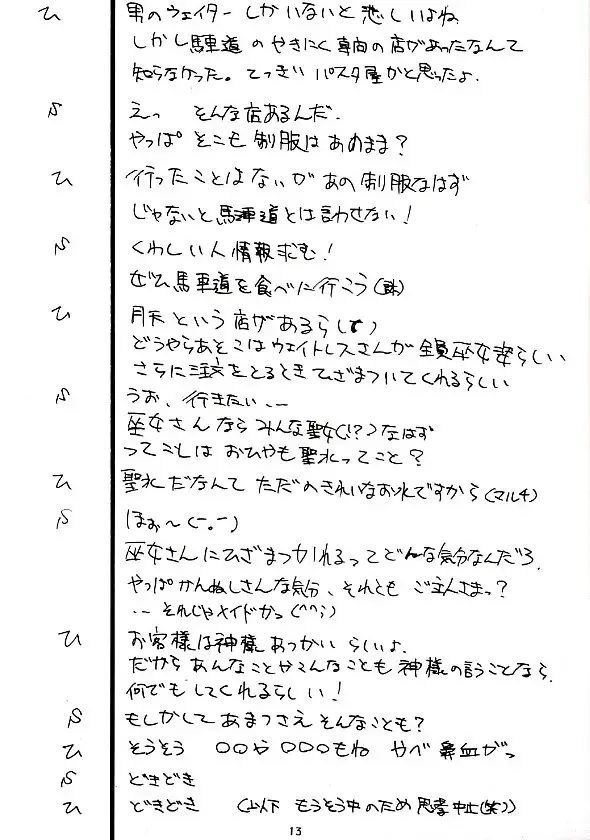 ひ 男のウェイターしかいないと悲しいよね
しかし馬車道のやきにく専向の店があったなんて
知らなかった。てっきりパスタ屋かと思ったよ.
S えっ そんな店あるんだ.
やっぱそこも制服はあのまま?
ひ 行ったことはないがあの制服なはず
じゃないと馬車道とは言わせない!
S くわしい人情報求む!
ぜひ馬車道を食べに行こう
ひ 月天という店があるらしい
どうやらあそこはウェイトレスさんが全員巫女姿らしい
さらに注文をとるときひざまついてくれるらしい
S うお、行きたい、--
巫女さんならみんな聖女(!?)なはず
ってことはおひやも聖水ってこと?
ひ 聖水だなんてただのきれいなお水ですから(マルチ)
S ほぉ〜(-。-)
巫女さんにひざまつかれるってどんな気分なんだろ.
やっぱかんぬしさんな気分、それともご主人さまっ?
-- それじゃメイドかっ(^^;)
ひ お客様は神様あつかいらしいよ.
だからあんなことやこんなことも神様の言うことなら.
何でもしてくれるらしい!
S もしかしてあまつさえそんなことも?
ひ そうそう ○○や○○○もね やべ鼻血がっ
S どきどき
ひ どきどき (以下もうそう中のため思考中止(笑))
13